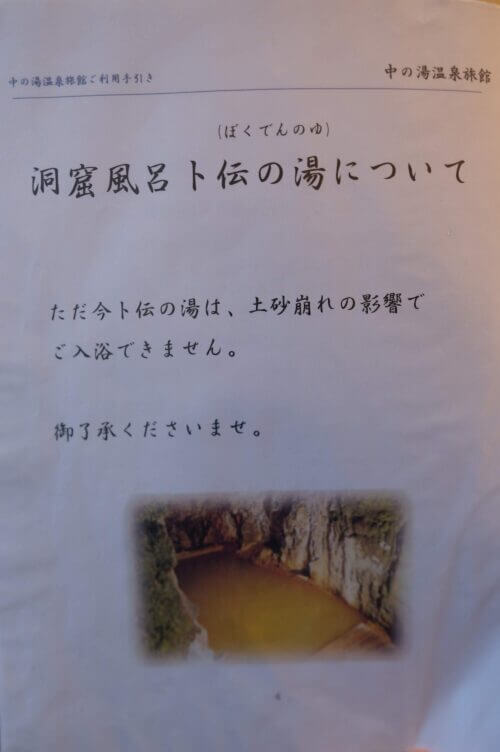 中の湯温泉旅館ご利用手引き
中の湯温泉旅館
(ぼくでんのゆ)
洞窟風呂卜伝の湯について
ただ今卜伝の湯は、土砂崩れの影響で
ご入浴できません。
御了承くださいませ。